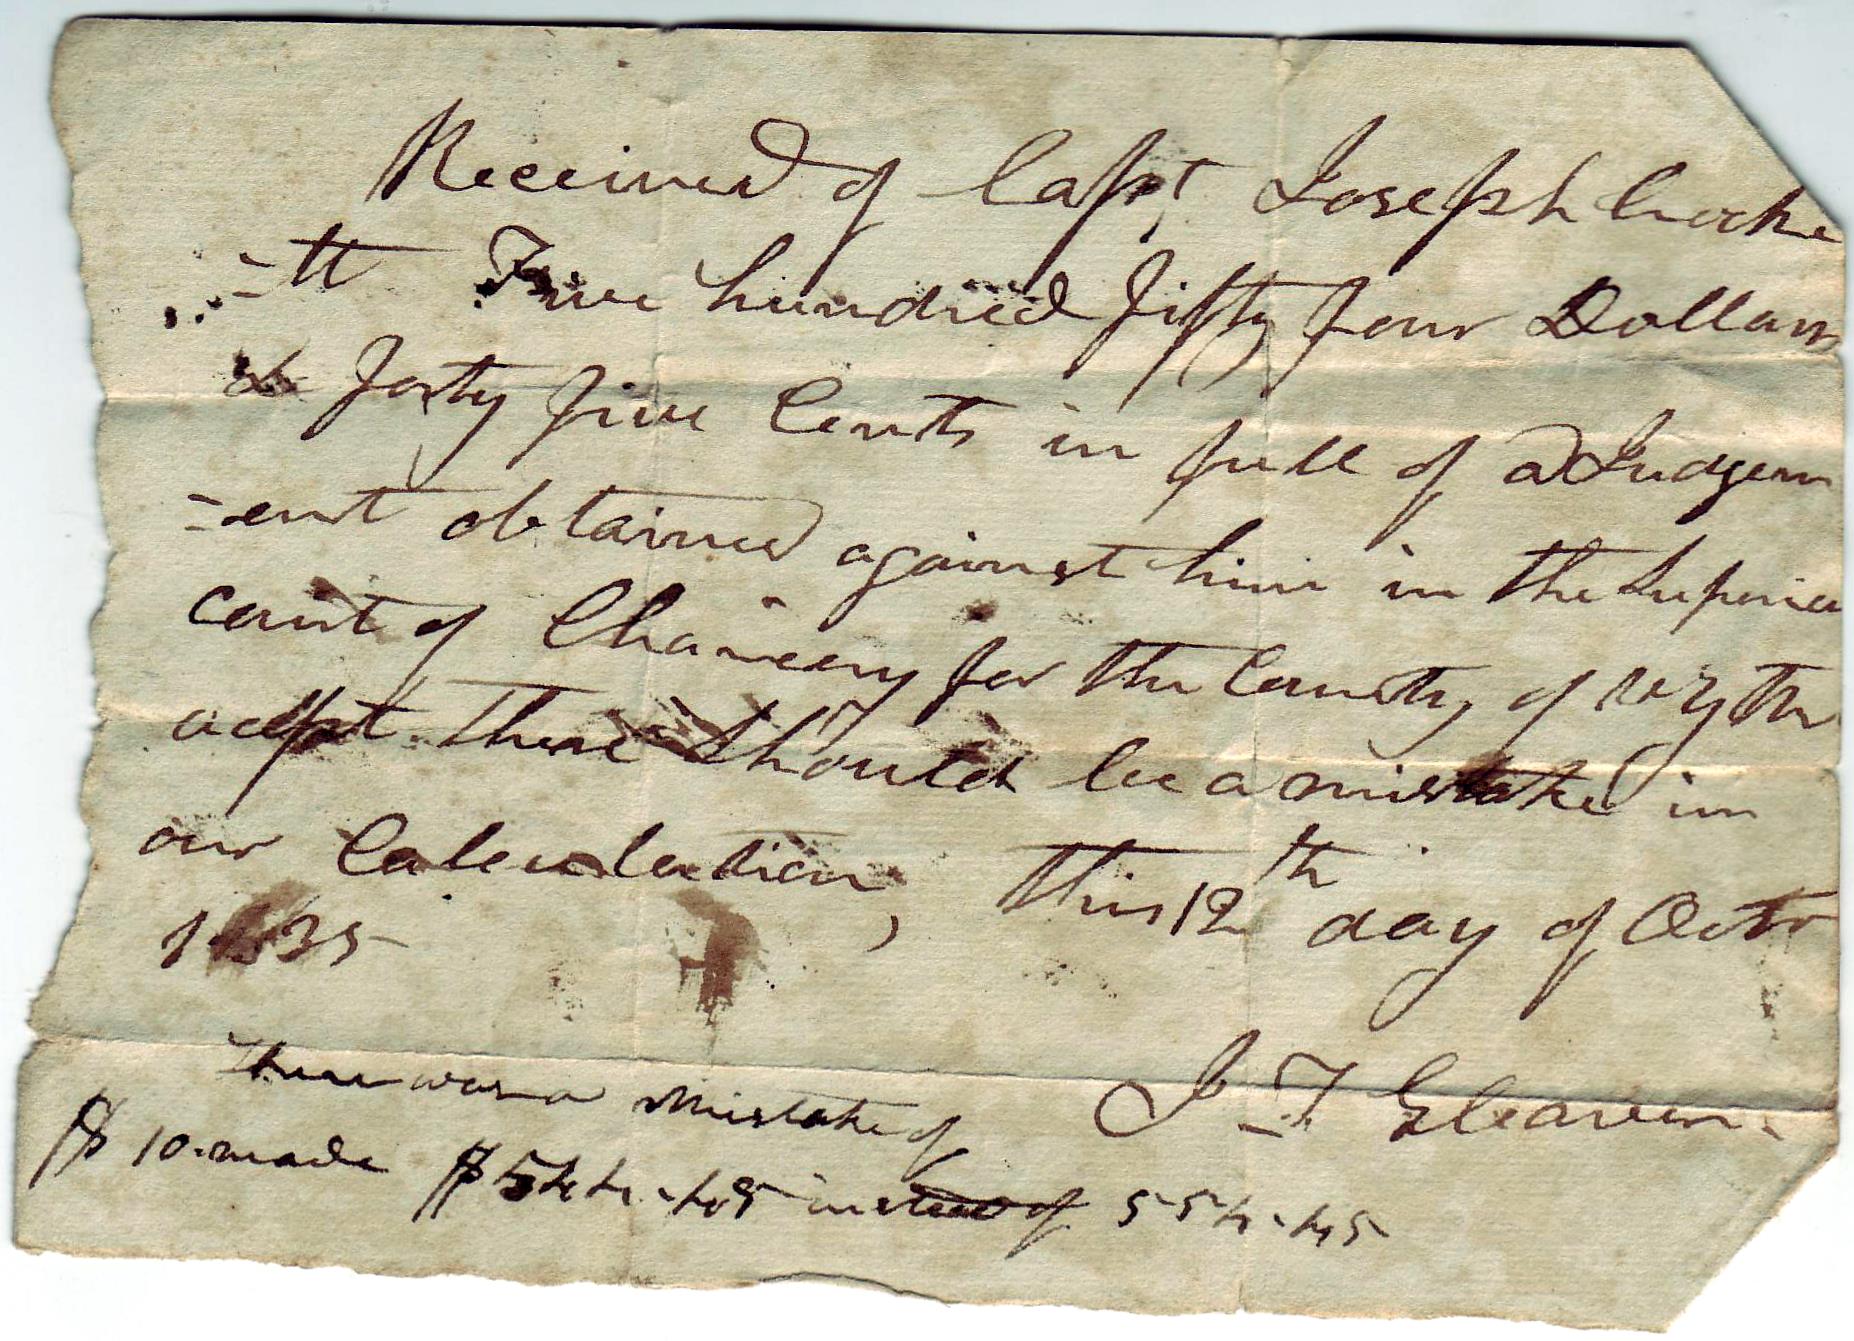 Received of Capt Joseph Crocke
-tt Five hundred fifty four Dollars
& forty five Cents in full of a Judgem
-ent obtained against him in the Superior
court of Chancery for the County of Wythe
acept there should be a mistake in
our Calculation, this 12th day of Octr
1835
J. T. Gleaves.
There was a mistake of
$ 10. made $ 544.45 instead of 554.45